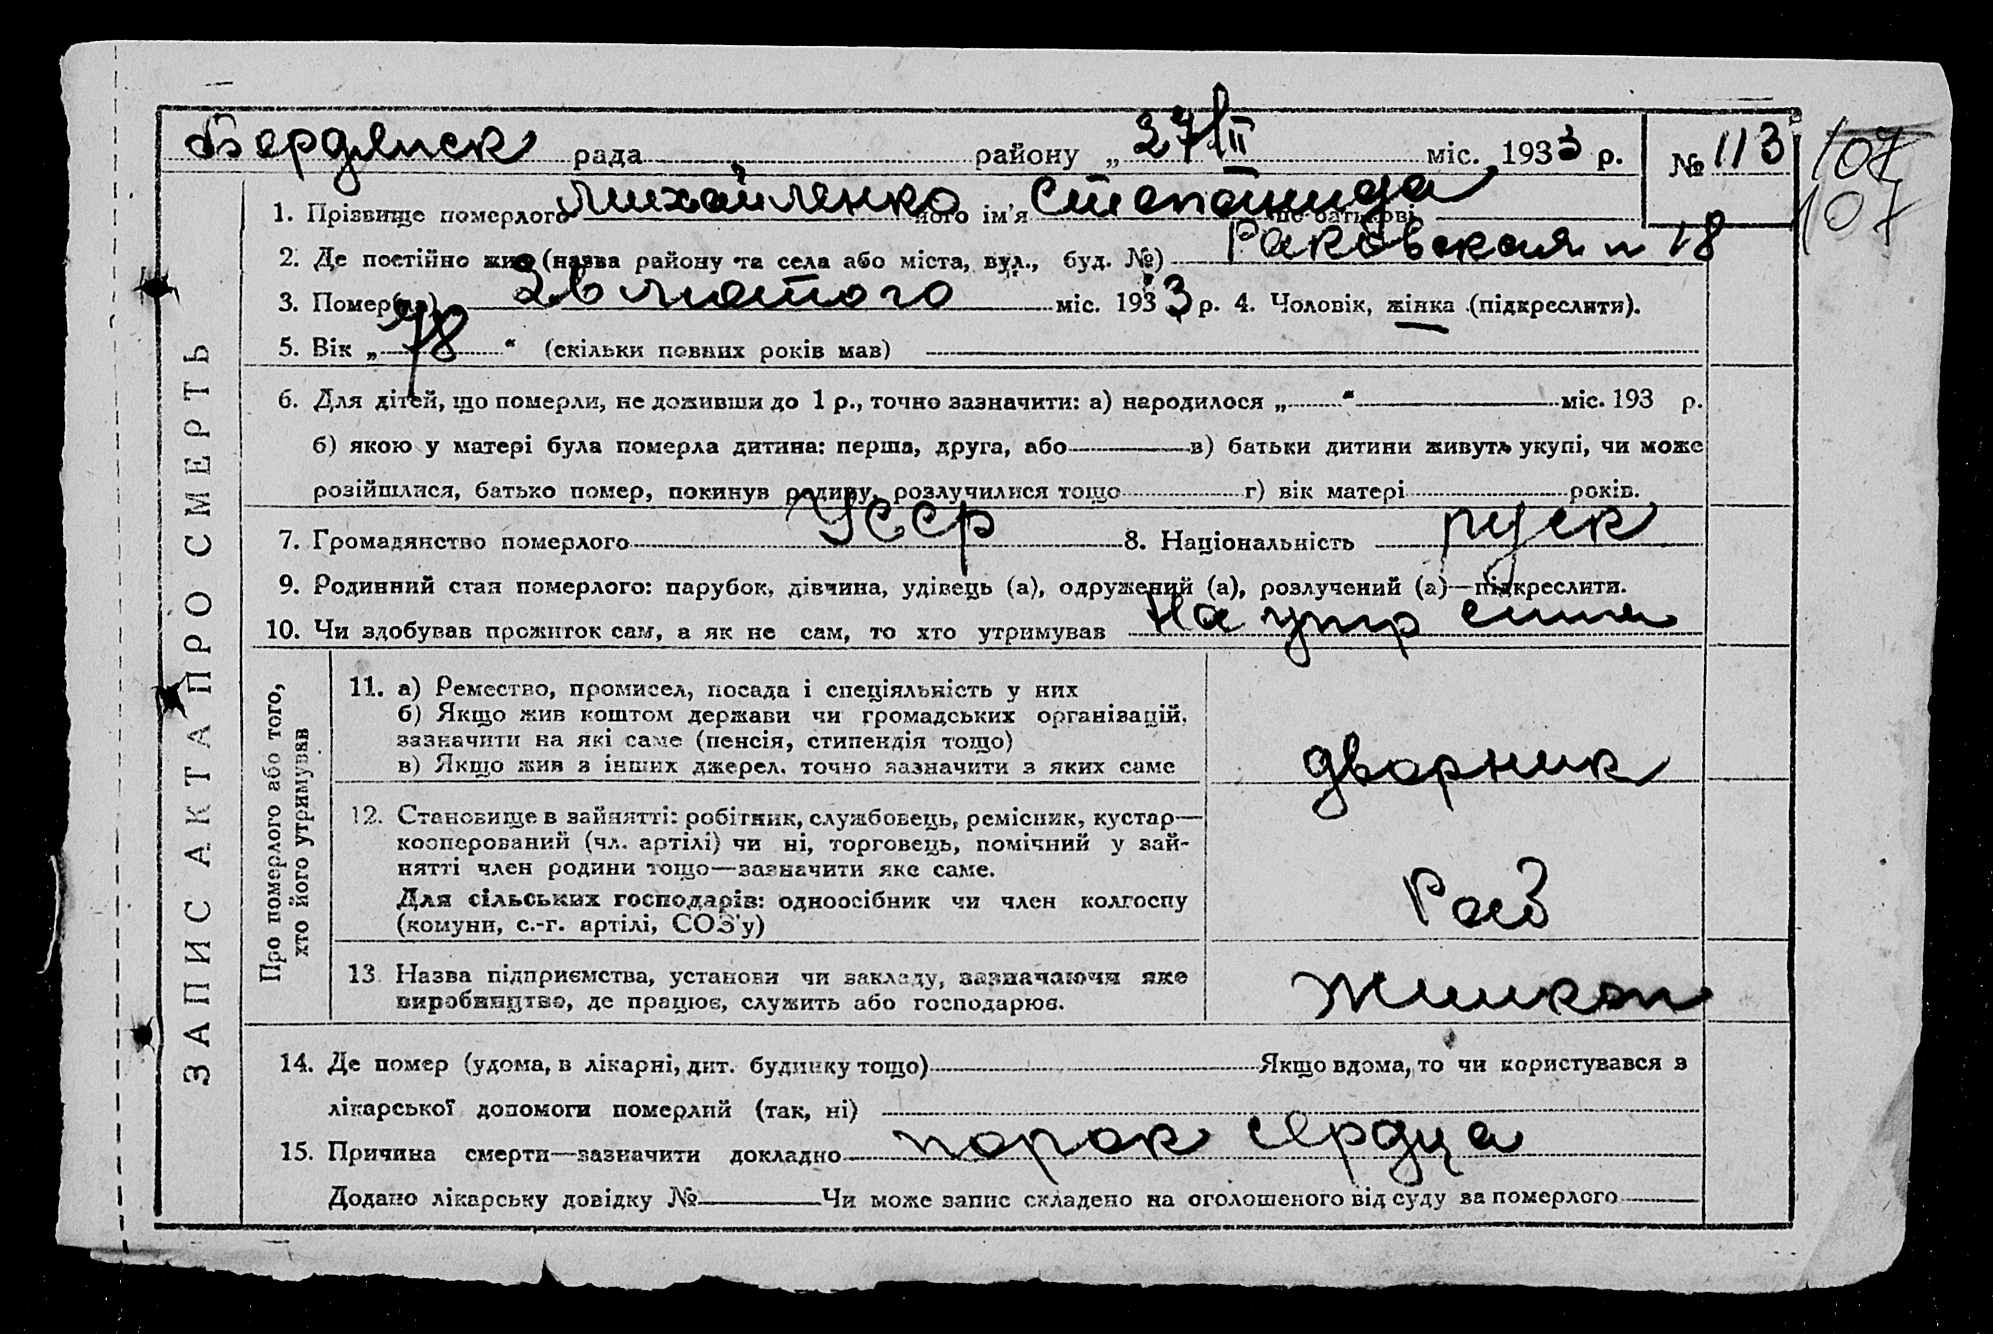 Бердянск рада района „27/II міс. 1933 р. № 113 107
107
1. Прізвище померлого Михайленко його ім'я Степанида по батькові
2. Де постійно жив (назва району та села або міста, вул., буд. №) Раковская п 18
3. Помер(ла) 26 лютого міс. 1933 р. 4. Чоловік, жінка (підкреслити).
5. Вік „78“ (скільки повних років мав)
6. Для дітей, що померли, не доживши до 1 р., точно зазначити: а) народилося „ “ міс. 193 р.
б) якою у матері була померла дитина: перша, друга, або в) батьки дитини живуть укупі, чи може
розійшлися, батько помер, покинув родину, розлучилися тощо г) вік матері років.
7. Громадянство померлого УССР 8. Національність русск
9. Родинний стан померлого: парубок, дівчина, удівець (а), одружений (а), розлучений (а)—підкреслити.
10. Чи здобував прожиток сам, а як не сам, то хто утримував На утр сина
ЗАПИС АКТА ПРО СМЕРТЬ
Про померлого або того,
хто його утримував
11. а) Ремество, промисел, посада і спеціяльність у них
б) Якщо жив коштом держави чи громадських організацій,
зазначити на які саме (пенсія, стипендія тощо)
в) Якщо жив з інших джерел, точно зазначити з яких саме
дворник
12. Становище в зайнятті: робітник, службовець, ремісник, кустар—
кооперований (чл. артілі) чи ні, торговець, помічний у зай-
нятті член родини тощо—зазначити яке саме.
Для сільських господарів: одноосібник чи член колгоспу
(комуни, с.-г. артілі, СОЗ'у)
Раб
13. Назва підприємства, установи чи закладу, зазначаючи яке
виробництво, де працює, служить або господарює.
14. Де помер (удома, в лікарні, дит. будинку тощо) Якщо вдома, то чи користувався з
лікарської допомоги померлий (так, ні)
15. Причина смерти—зазначити докладно порок сердца
Додано лікарську довідку № Чи може запис складено на оголошеного від суду за померлого